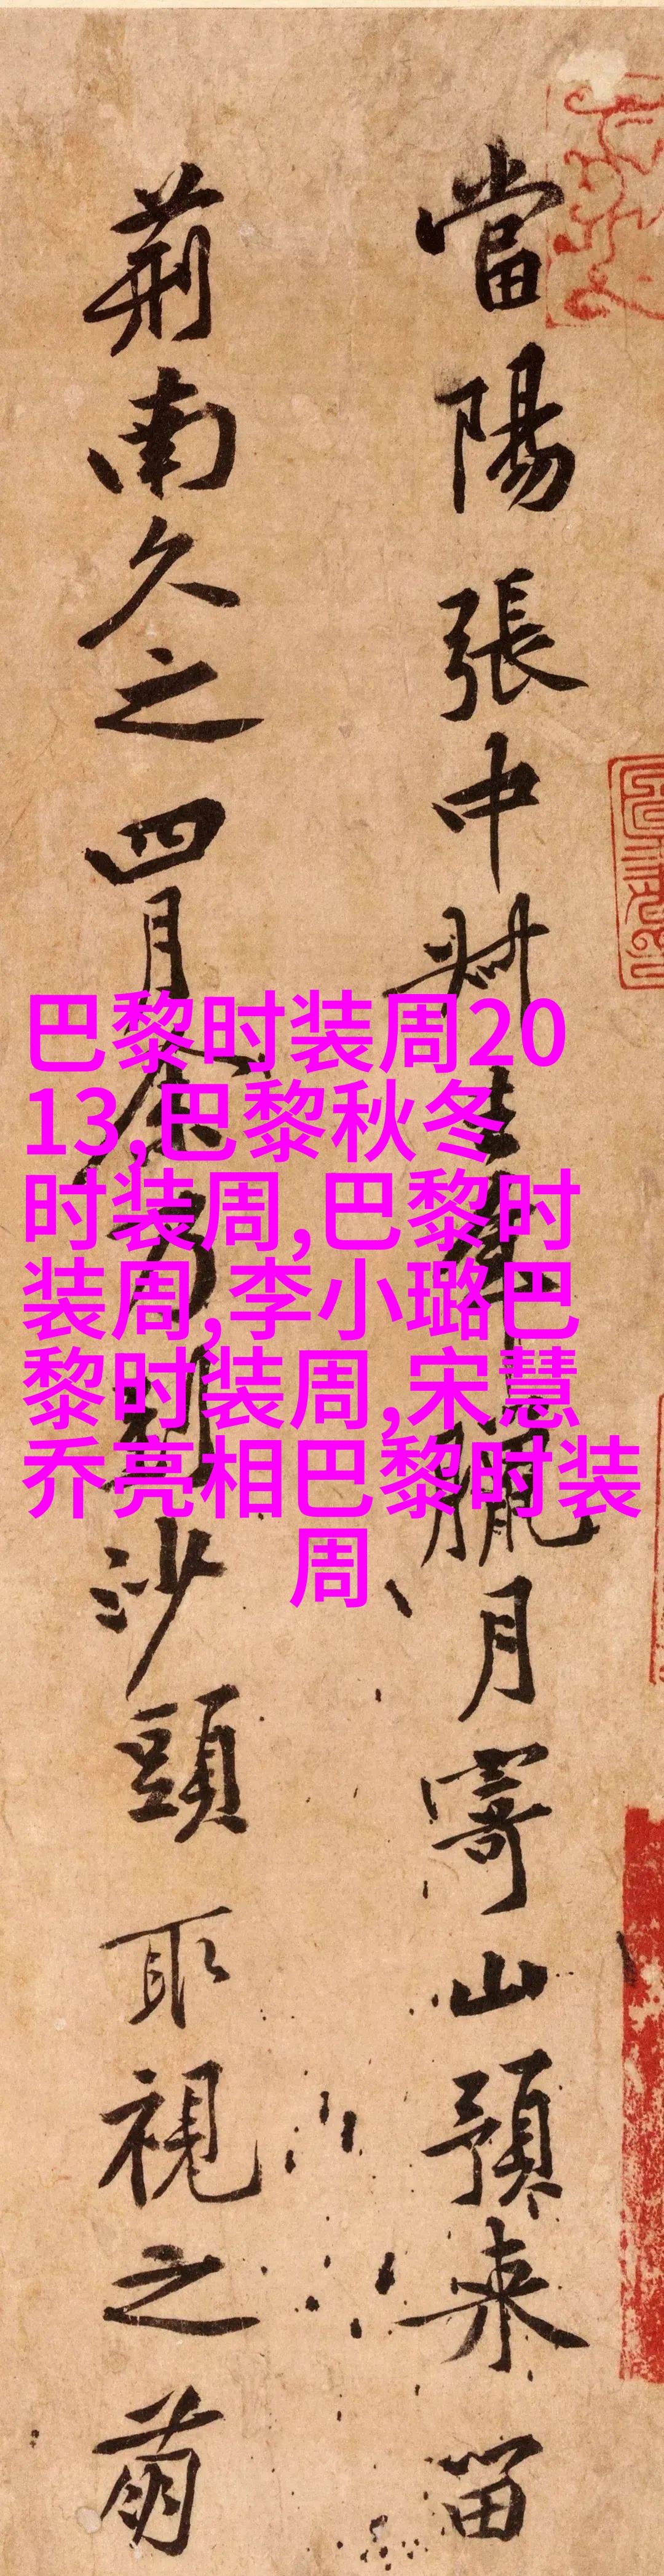 當陽張中叔去年臘月寄山預来留
荊南久之四月余乃到沙頭取視之萌
巴黎时装周20
13,巴黎秋冬
时装周,巴黎时
装周,李小璐巴
黎时装周,宋慧
乔亮相巴黎时装
周